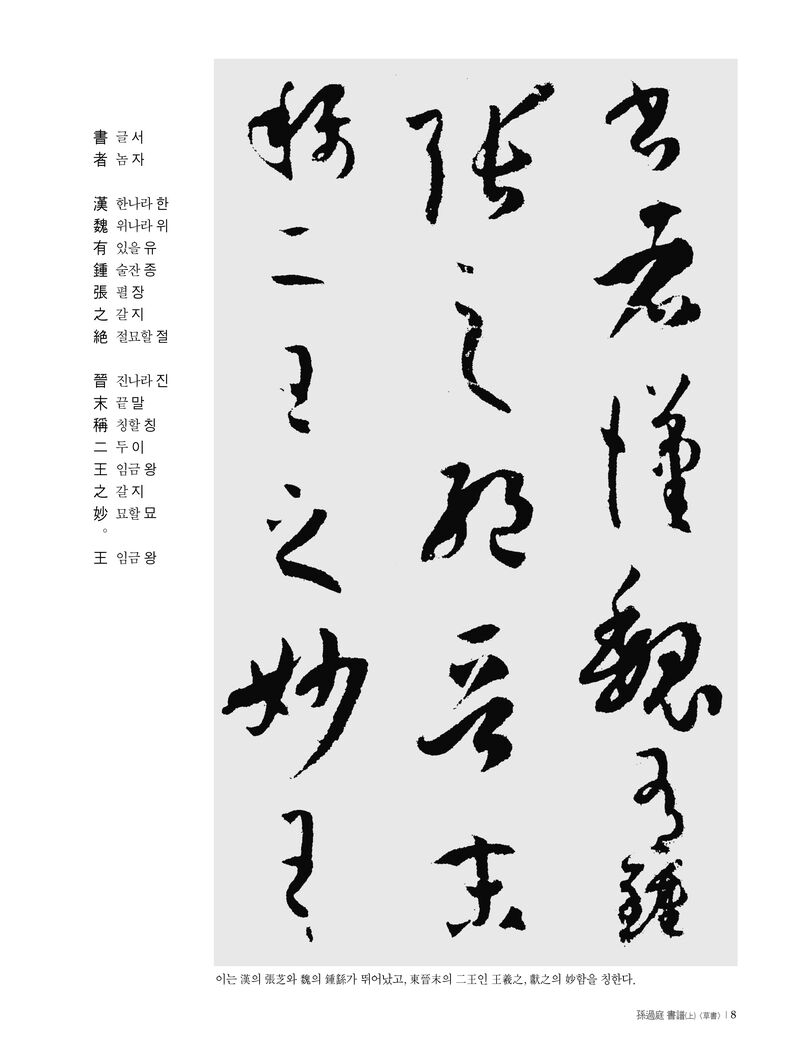 書 글 서
者 놈 자
漢 한나라 한
魏 위나라 위
有 있을 유
鍾 술잔 종
張 펼 장
之 갈 지
絶 절묘할 절
晉 진나라 진
末 끝 말
稱 칭할 칭
二 두 이
王 임금 왕
之 갈 지
妙 묘할 묘
。
王 임금 왕
書者漢魏有鍾
張之絶晉末
稱二王之妙王
이는 漢의 張芝와 魏의 鍾繇가 뛰어났고, 東晉末의 二王인 王羲之, 獻之의 妙함을 칭한다.
孫過庭 書譜(上)〈草書〉 | 8